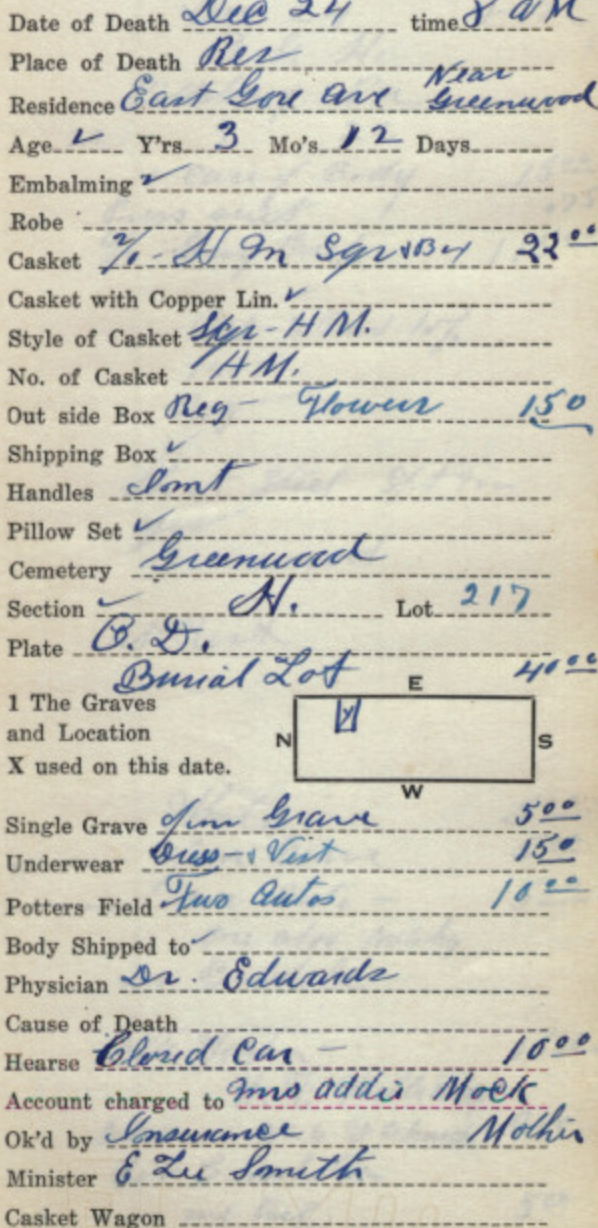 Date of Death Dec 24 time 8 am
Place of Death Res
Residence East Gore Ave Near Greenwood
Age ✓ Y'rs 3 Mo's 12 Days
Embalming ✓
Robe
Casket H M Sqr 22 00
Casket with Copper Lin. ✓
Style of Casket Sqr - H M.
No. of Casket H M.
Out side Box Reg - Flowers 1 50
Shipping Box ✓
Handles
Pillow Set ✓
Cemetery Greenwood
Section ✓ H. Lot 217
Plate O. D.
Burial Lot 40 00
E
1 The Graves
and Location
X used on this date.
N
S
W
Single Grave Grave 5 00
Underwear Dress & Vest 1 50
Potters Field Two Autos 10 00
Body Shipped to ✓
Physician Dr. Edwards
Cause of Death
Hearse Closed Car - 10 00
Account charged to Mrs Addie Mock
Ok'd by Insurance Mother
Minister E Lee Smith
Casket Wagon